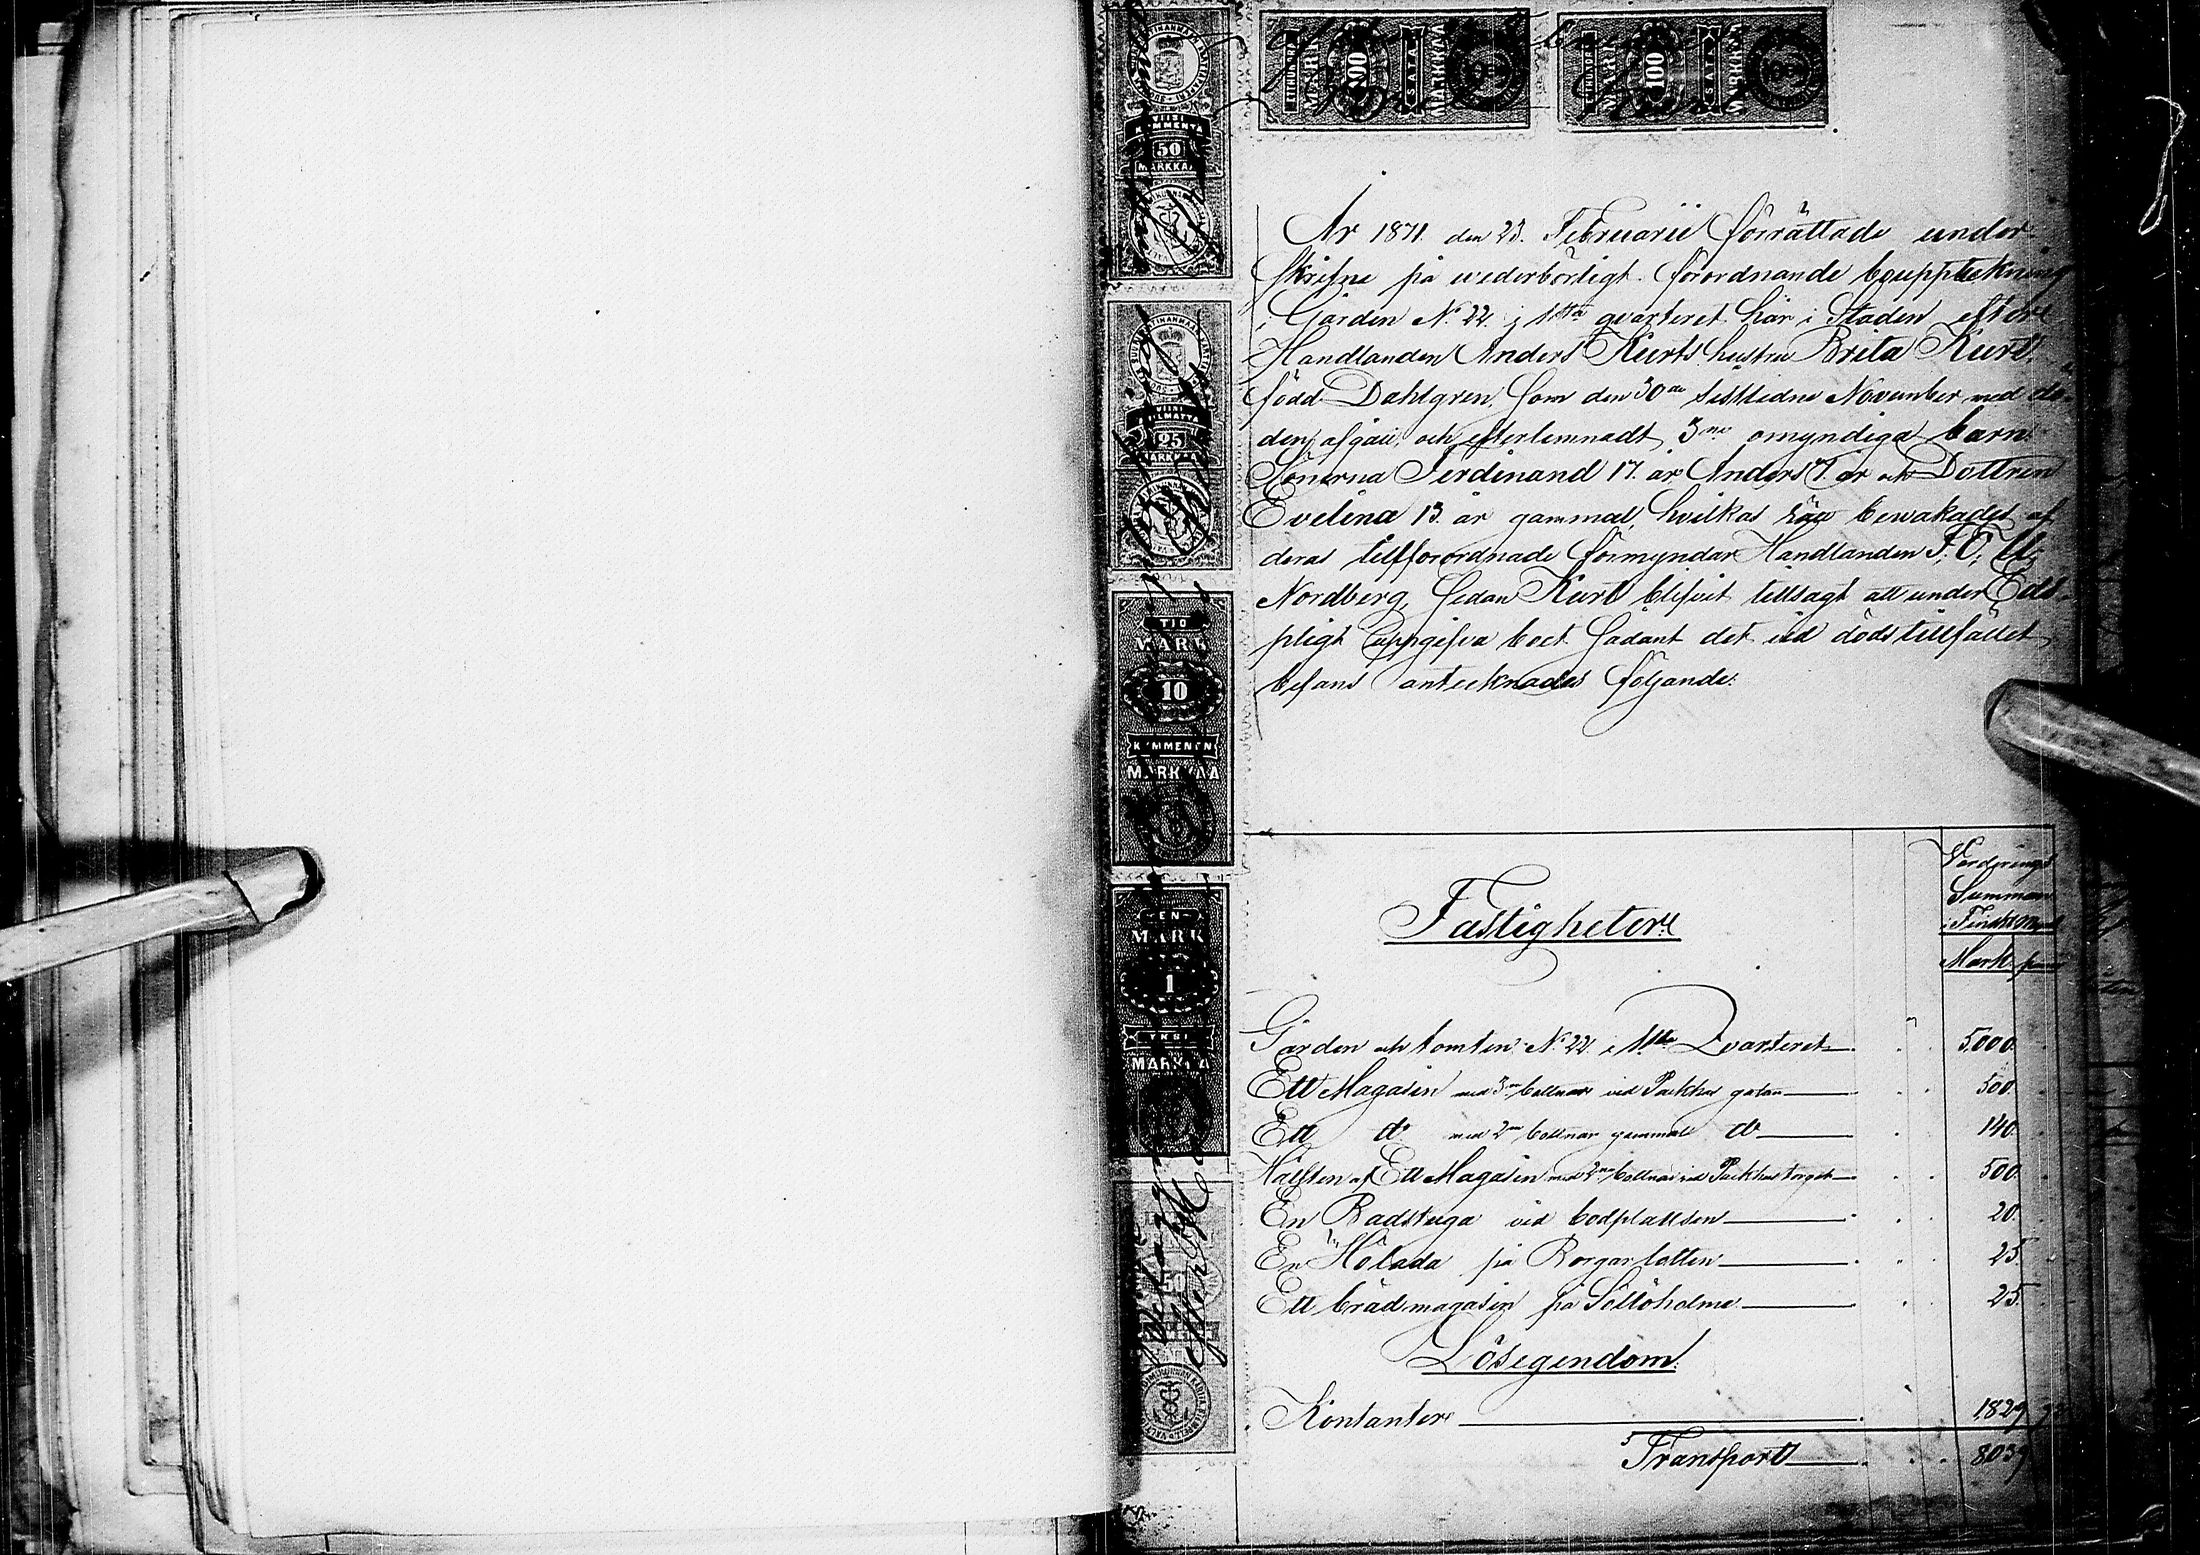 VIISI
KYMMENTÄ
50
MARKKAA
ETTHUNDRA
MARK
100
SATA
MARKKAA
ETTHUNDRA
MARK
100
SATA
MARKKAA
25
MARKKAA
TIO
MARK
10
KYMMENEN
MARKKAA
EN
MARK
1
YKSI
MARKKAA
50
År 1871. den 23. Februarii förrättade under-
skrifne på wederbörligt förordnande bouppteckning
i Gården No 22. i 1sta qvarteret här i Staden efter
Handlanden Anders Kurts hustru Brita Kurt,
född Dahlgren, som den 30de sistledne November med dö-
den afgått, och efterlemnadt 3ne omyndiga barn
Sönerna Ferdinand 17. år Anders 7. år och Dottren
Evelina 13. år gammal, hvilkas bewakades af
deras tillförordnade förmyndar Handlanden
Nordberg, Sedan Kurt blifvit tillsagt att under Eds-
pligt uppgifva boet sådant det vid dödstillfället
befans antecknades följande:
Värderings
Summan
i Finskt Mynt
Fastigheter
Mark
Gården och tomten No 22. i 1sta Qvarteret 5,000.
Ett Magasin med 3ne bottnar vid Packhus gatan 500.
Ett do med 2ne bottnar gammalt do 140.
Hälften af Ett Magasin med 2ne bottnar vid Packhus torget 500.
En Badstuga vid bodplattsen 20.
En Hölada på Borgar lotten 25.
Ett brädmagasin på 25.
Lösegendom.
Kontanter 1,829
Transport 8039